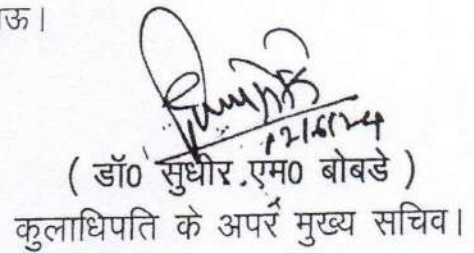 ऊ।
12/6/24
( डॉ0 सुधीर.एम0 बोबडे )
कुलाधिपति के अपर मुख्य सचिव।